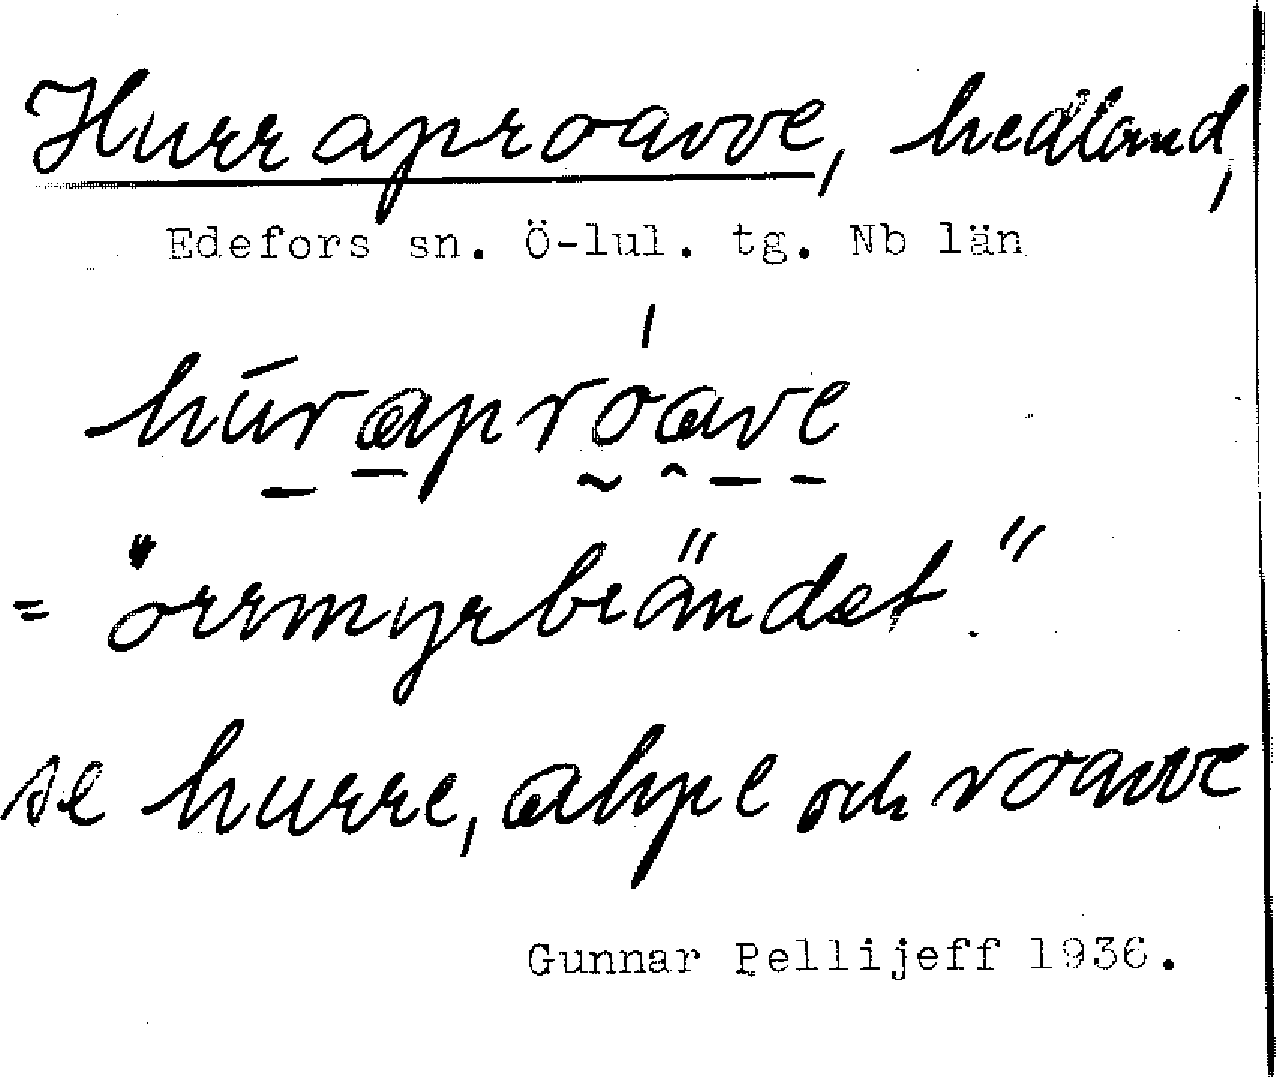 Hurraproavve, hedland,
Edefors sn. Ö-lul. tg. Nb län
hūraproave
= "örrmyrbrändet."
se hurre, ahpe och roavve
Gunnar Pellijeff 1936.